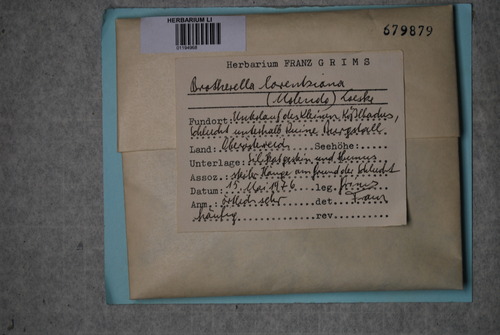 HERBARIUM LI
01194968
679879
Herbarium FRANZ GRIMS
Brotherella lorentziana
(Molendo) Loeske
Fundort: Unterlauf des kleinen Kößlbaches,
Schlucht unterhalb Ruine
Land: Oberösterreich Seehöhe:
Unterlage: Silikatgestein und Humus
Assoz. steile Hänge am Grund der Schlucht
Datum: 15. Mai 1976 leg. Grims
Anm.: örtlich sehr det. Franz
häufig rev.